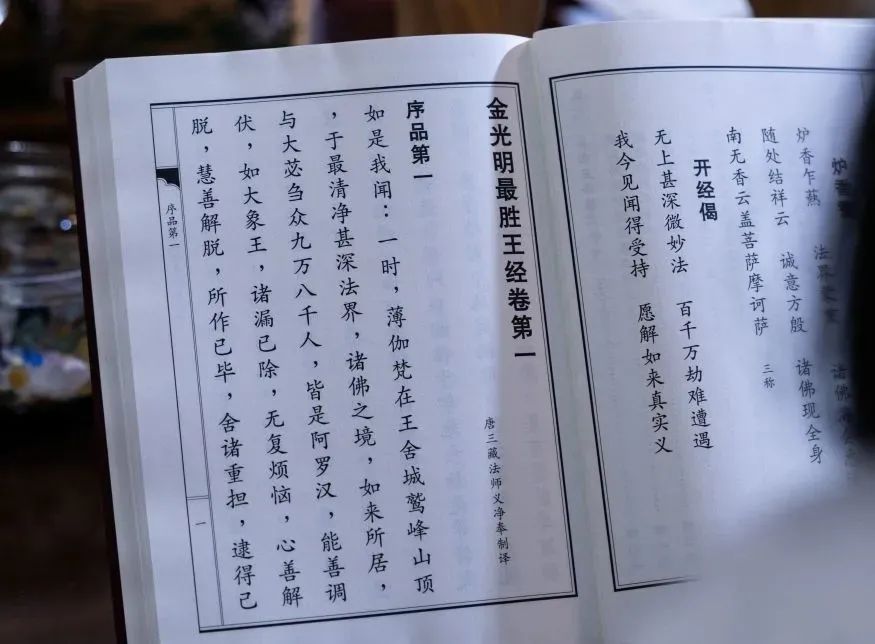 炉香
炉香乍爇 法界 诸佛
随处结祥云 诚意方殷 诸佛现全身
南无香云盖菩萨摩诃萨 三称
开经偈
无上甚深微妙法 百千万劫难遭遇
我今见闻得受持 愿解如来真实义
金光明最胜王经卷第一
唐三藏法师义净奉制译
序品第一
如是我闻：一时，薄伽梵在王舍城鹫峰山顶
，于最清净甚深法界，诸佛之境，如来所居，
与大苾刍众九万八千人，皆是阿罗汉，能善调
伏，如大象王，诸漏已除，无复烦恼，心善解
脱，慧善解脱，所作已毕，舍诸重担，逮得己
序品第一
一